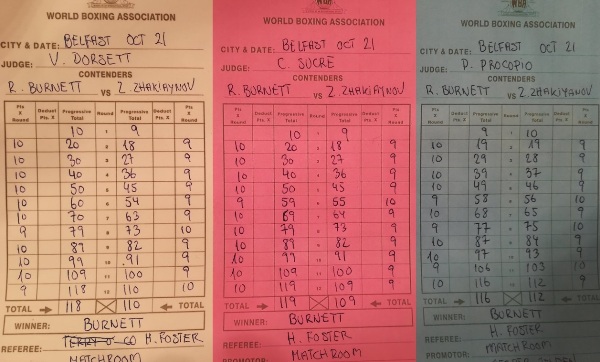 WORLD BOXING ASSOCIATION
CITY & DATE: BELFAST OCT 21
JUDGE: V. DORSETT
CONTENDERS
R. BURNETT VS Z. ZHAKIAYNOV
Pts X Round Deduct Pts. X Progressive Total Round Progressive Total Deduct Pts. X Pts X Round
10 9
10 20 18 9
10 30 27 9
10 40 36 9
10 50 45 9
10 60 54 9
10 70 63 9
9 79 73 10
10 89 82 9
10 99 91 9
10 109 100 9
9 118 110 10
TOTAL 118 110 TOTAL
WINNER: BURNETT
REFEREE: H. FOSTER
MATCHROOM
WORLD BOXING ASSOCIATION
CITY & DATE: BELFAST OCT 21
JUDGE: C. SUCRE
CONTENDERS
R. BURNETT VS Z. ZHAKIAYNOV
Pts X Round Deduct Pts. X Progressive Total Round Progressive Total Deduct Pts. X Pts X Round
10 9
10 20 18 9
10 30 27 9
10 40 36 9
10 50 45 9
9 59 55 10
10 69 64 9
10 79 73 9
10 89 82 9
10 99 91 9
10 109 100 9
10 119 109 9
TOTAL 119 109 TOTAL
WINNER: BURNETT
REFEREE: H. FOSTER
PROMOTOR: MATCHROOM
WBA
WORLD BOXING ASSOCIATION
CITY & DATE: BELFAST OCT 21
JUDGE: P. PROCOPIO
CONTENDERS
R. BURNETT VS Z. ZHAKIYANOV
Pts X Round Deduct Pts. X Progressive Total Round Progressive Total Deduct Pts. X Pts X Round
9 10
10 19 19 9
10 29 28 9
10 39 37 9
10 49 46 9
9 58 56 10
10 68 65 9
9 77 75 10
10 87 84 9
10 97 93 9
9 106 103 10
10 116 112 9
TOTAL 116 112 TOTAL
WINNER: BURNETT
REFEREE: H. FOSTER
PROMOTOR: MATCHROOM